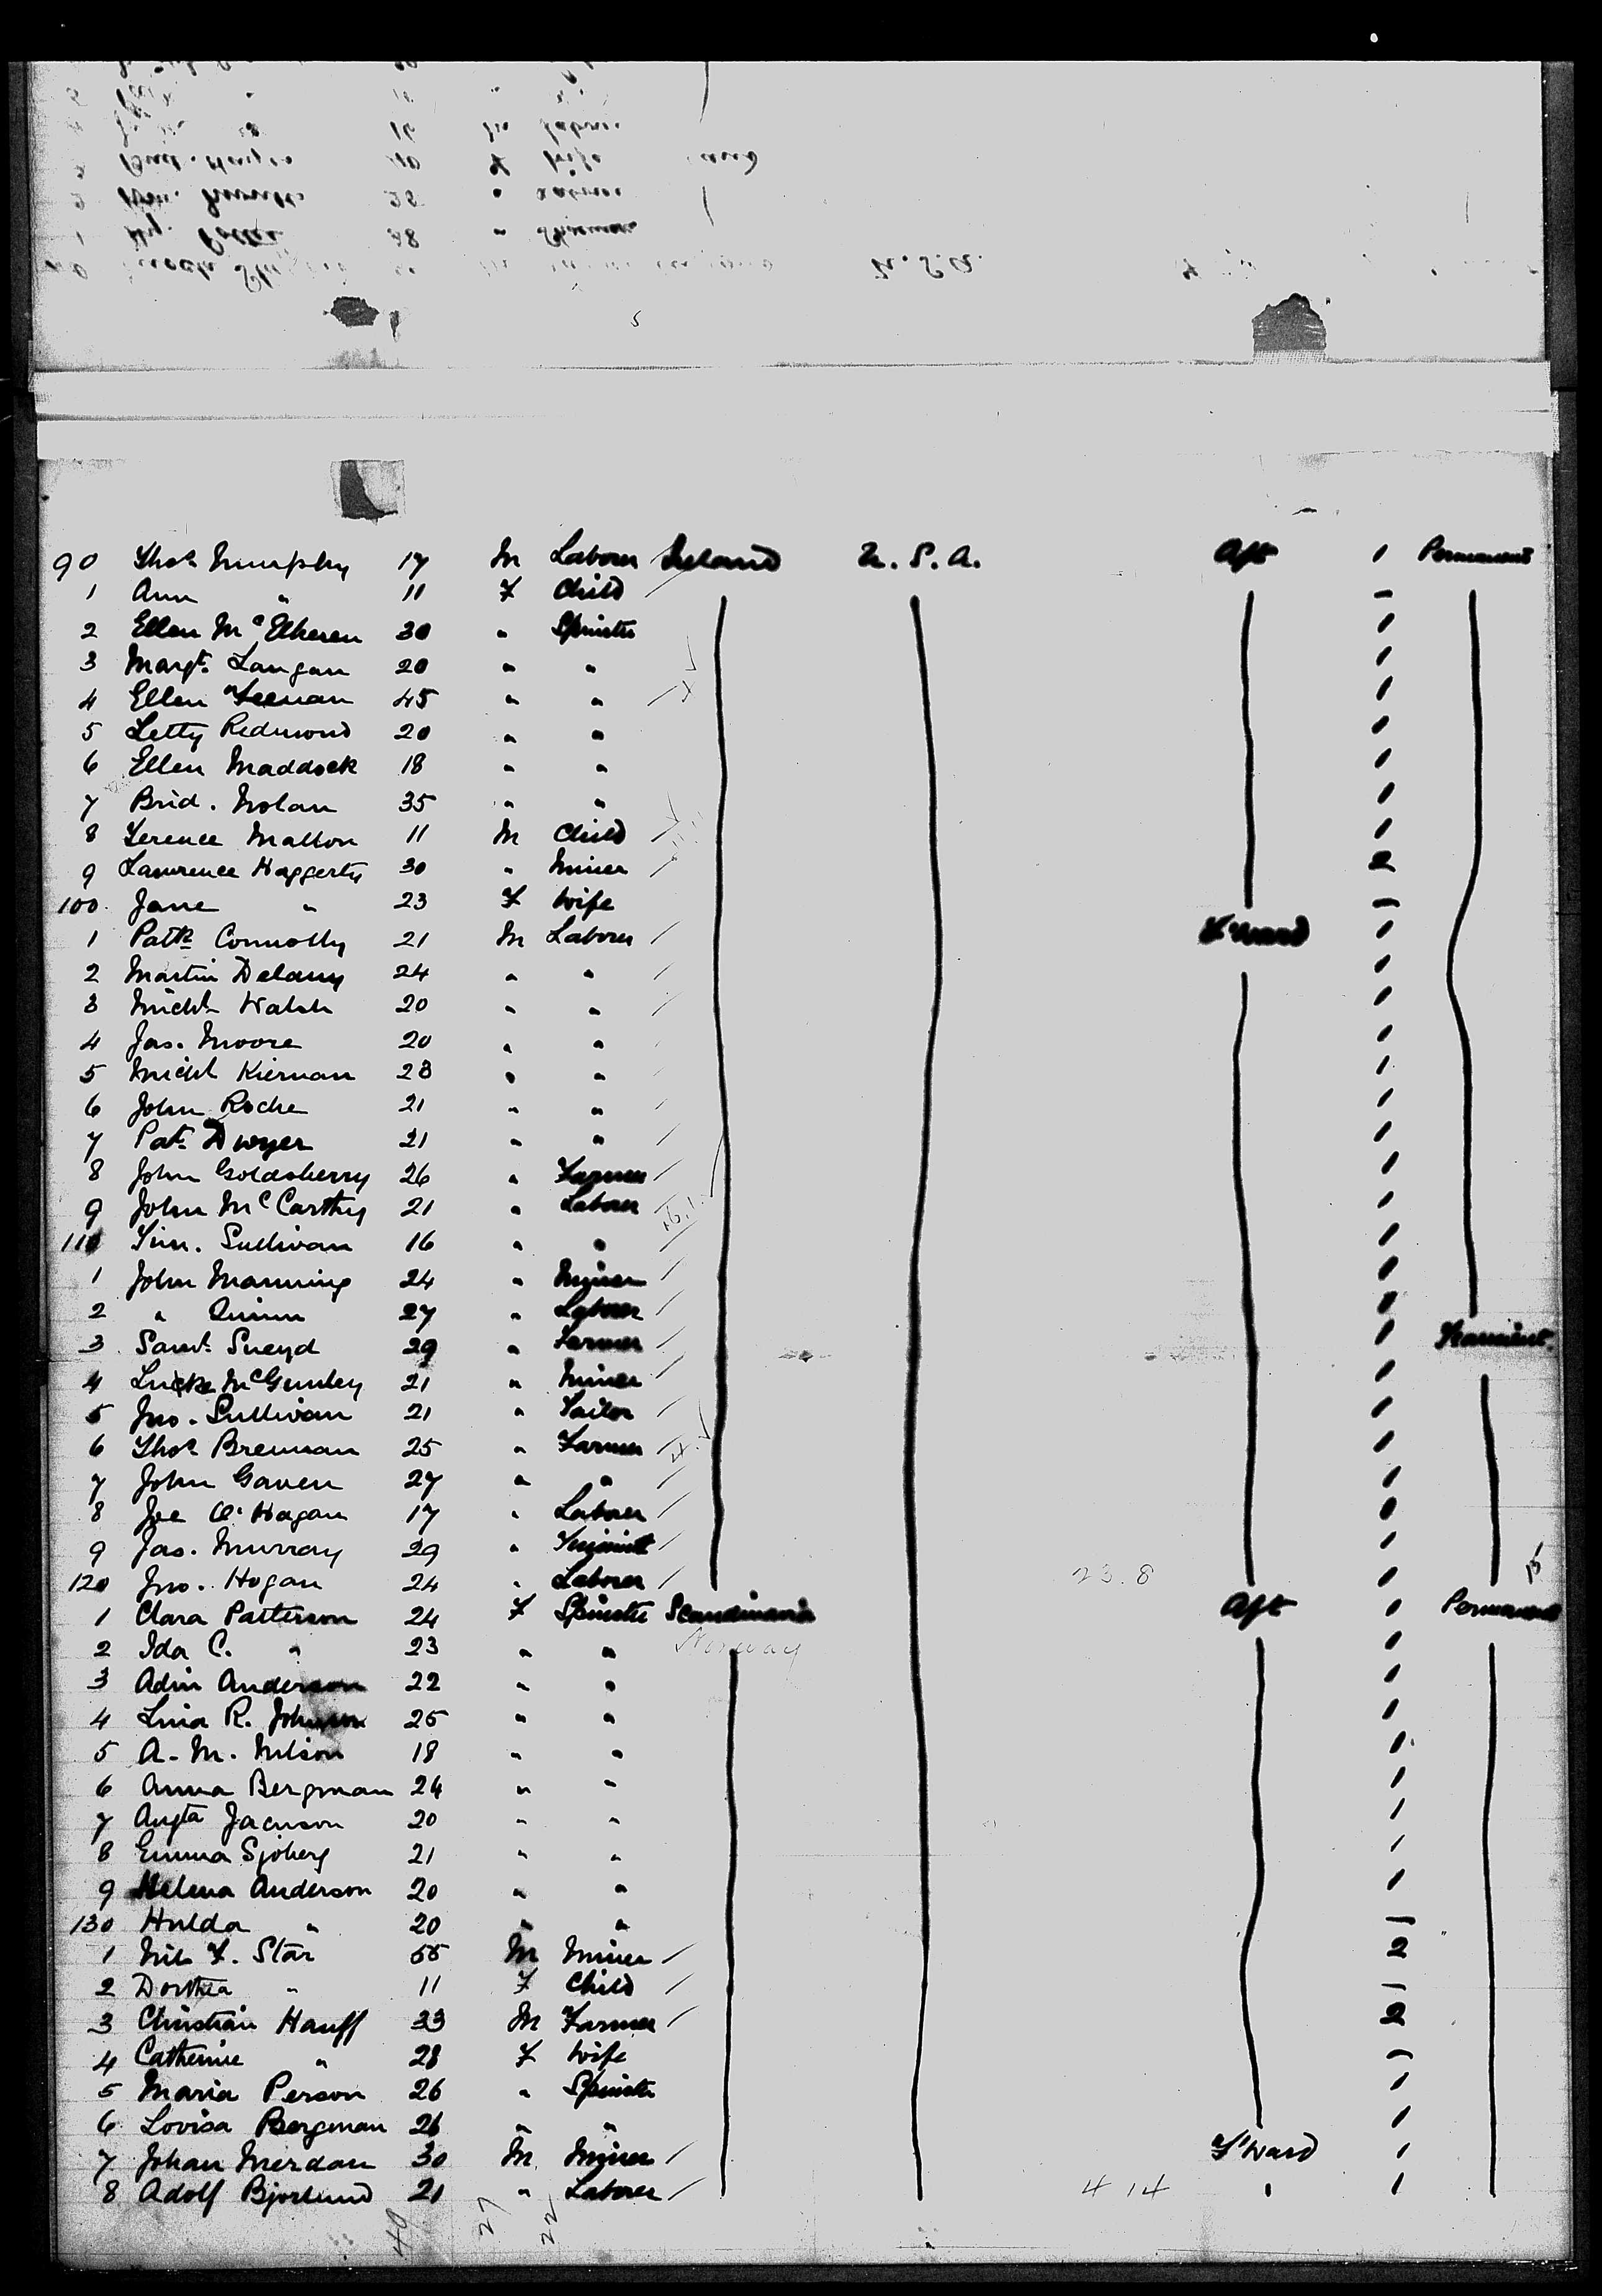 90 Thos Murphy 17 M Laborer Ireland U.S.A. Aft 1 Permanent
1 Ann " 11 F Child –
2 Ellen McElheren 30 " Spinster 1
3 Margt. Langan 20 " " 1
4 Ellen Feenan 45 " " 1
5 Letty Redmond 20 " " 1
6 Ellen Maddock 18 " " 1
7 Brid. Nolan 35 " " 1
8 Terence Mallon 11 M Child 1
9 Lawrence Haggerty 30 " Miner 2
100 Jane " 23 F Wife –
1 Patk Connolly 21 M Laborer F'Ward 1
2 Martin Delany 24 " " 1
3 Michl Walsh 20 " " 1
4 Jas. Moore 20 " " 1
5 Michl Kiernan 28 " " 1
6 John Roche 21 " " 1
7 Pat. Dwyer 21 " " 1
8 John Goldsberry 26 " Farmer 1
9 John McCarthy 21 " Laborer 1
110 Tim. Sullivan 16 " " 1
1 John Manning 24 " Miner 1
2 " Quinn 27 " Laborer 1
3 Saml. Sneyd 29 " Farmer 1 Transient
4 McGinley 21 " Miner 1
5 Jno. Sullivan 21 " Tailor 1
6 Thos Brennan 25 " Farmer 1
7 John Gaven 27 " " 1
8 Joe O'Hagan 17 " Laborer 1
9 Jas. Murray 29 " 1
120 Jno. Hogan 24 " Laborer 23.8 1
1 Clara Patterson 24 F Spinster Scandinavia Aft 1 Permanent
2 Ida C. " 23 " " Norway 1
3 Adin Anderson 22 " " 1
4 Lina R. Johnson 25 " " 1
5 A. M. Nilson 18 " " 1
6 Anna Bergman 24 " " 1
7 Augta Jacnson 20 " " 1
8 Emma Sjoberg 21 " " 1
9 Helena Anderson 20 " " 1
130 Hulda " 20 " " –
1 Nils F. Star 55 M Miner 2
2 Dorthea " 11 F Child –
3 Christian Hauff 33 M Farmer 2
4 Catherine " 28 F Wife –
5 Maria Person 26 " Spinster 1
6 Lovisa Bergman 26 " " 1
7 Johan Merdan 30 M Miner F'Ward 1
8 Adolf Bjorlund 21 " Laborer 4 14 " 1
40 27 22